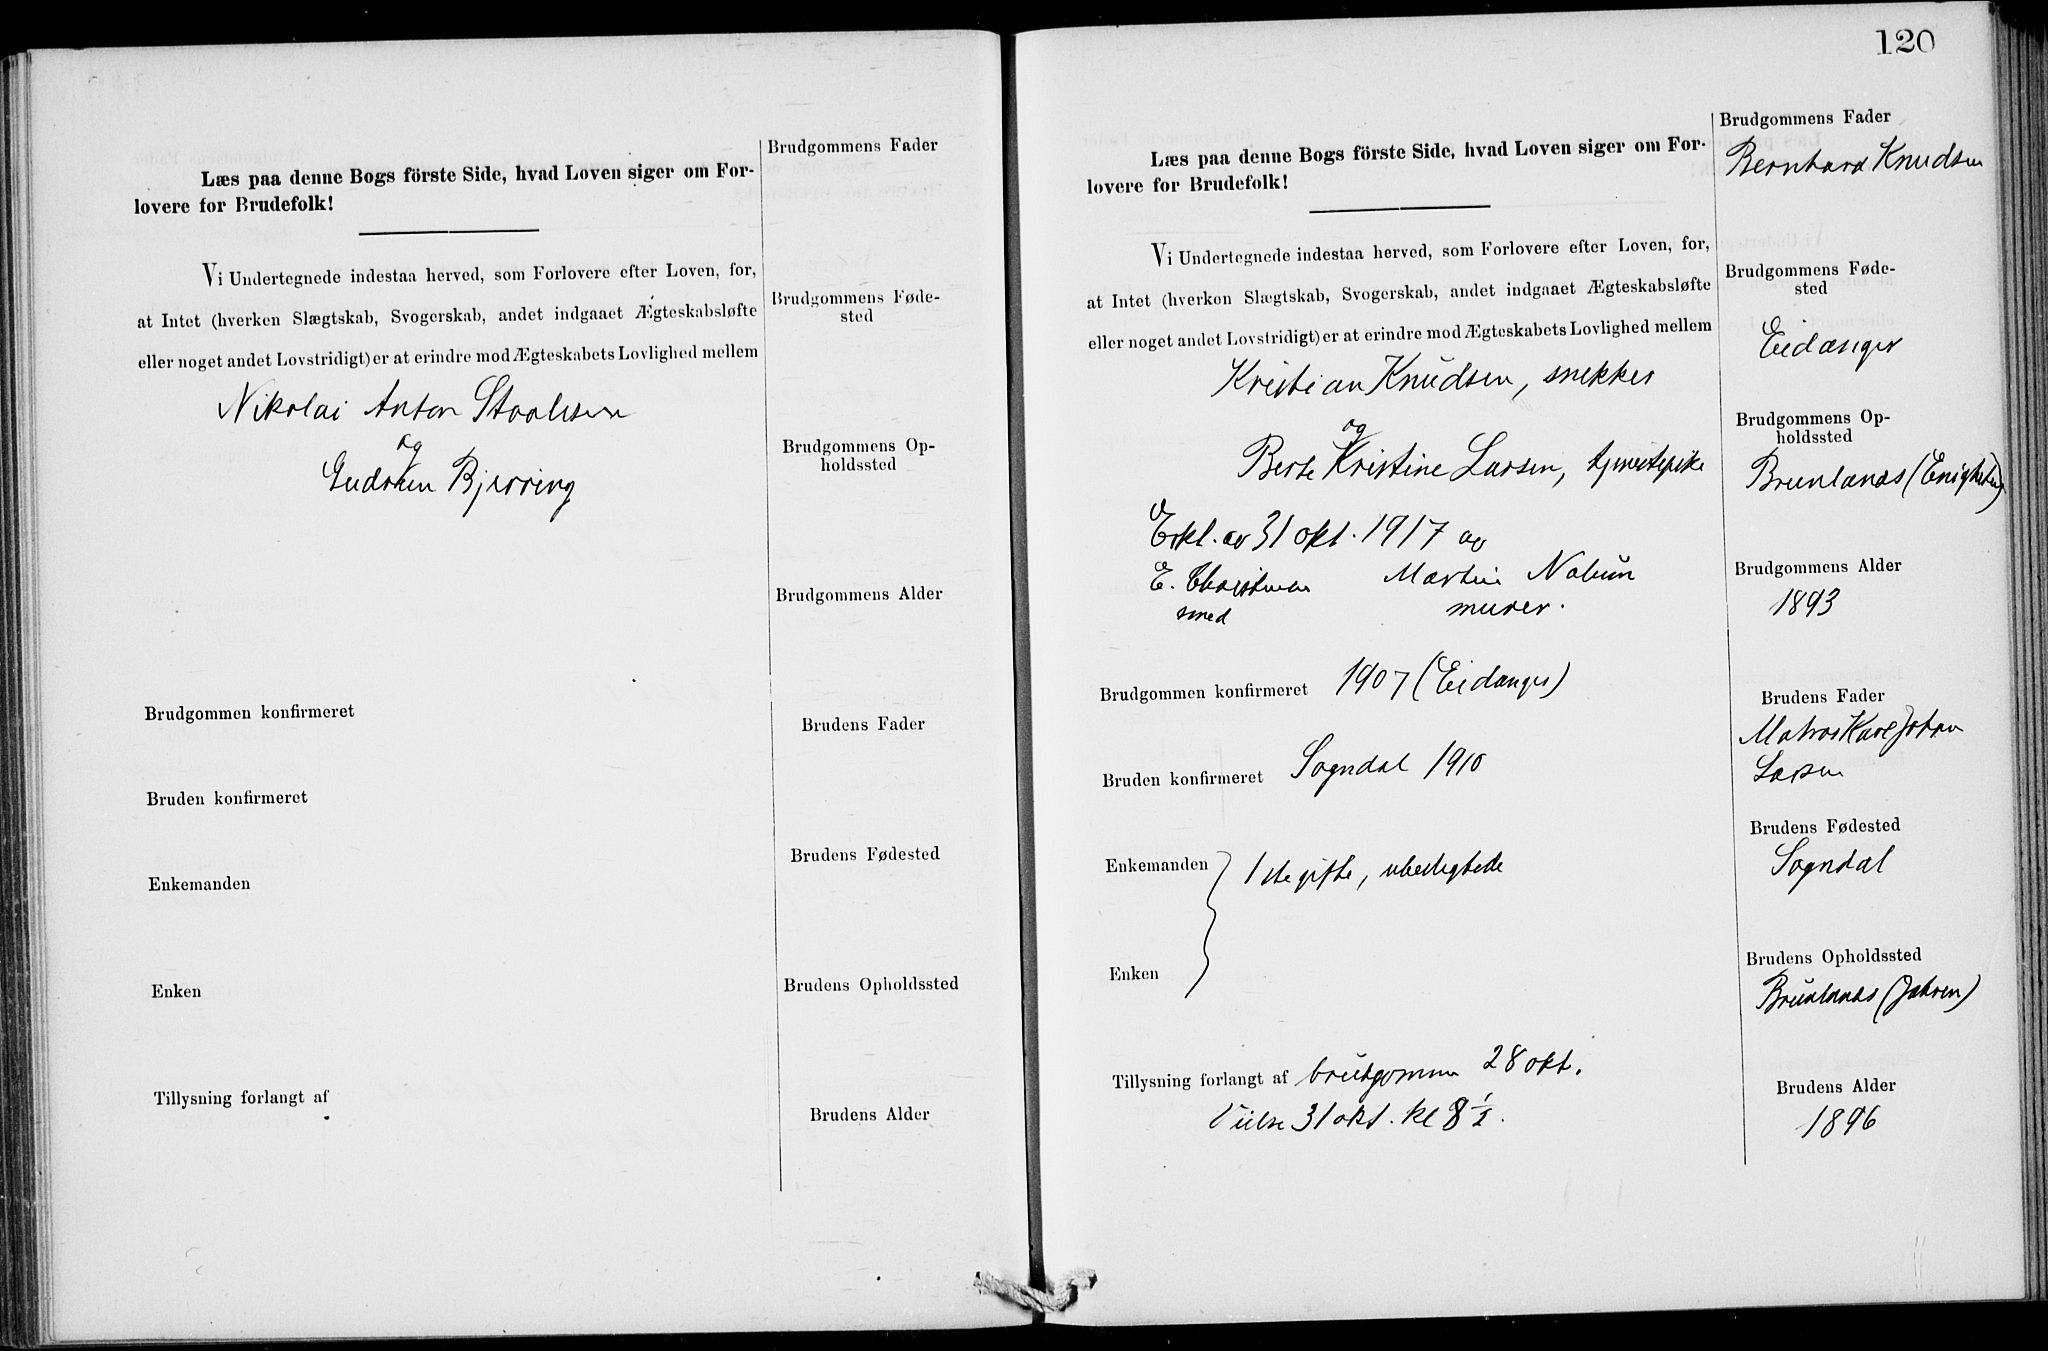 Læs paa denne Bogs förste Side, hvad Loven siger om For-
lovere for Brudefolk!
Vi Undertegnede indestaa herved, som Forlovere efter Loven, for,
at Intet (hverken Slægtskab, Svogerskab, andet indgaaet Ægteskabsløfte
eller noget andet Lovstridigt) er at erindre mod Ægteskabets Lovlighed mellem
Nikolai Anton Staalesen
og
Bjerring
Brudgommen konfirmeret
Bruden konfirmeret
Enkemanden
Enken
Tillysning forlangt af
Brudgommens Fader
Brudgommens Føde-
sted
Brudgommens Op-
holdssted
Brudgommens Alder
Brudens Fader
Brudens Fødested
Brudens Opholdssted
Brudens Alder
120
Læs paa denne Bogs förste Side, hvad Loven siger om For-
lovere for Brudefolk!
Vi Undertegnede indestaa herved, som Forlovere efter Loven, for,
at Intet (hverken Slægtskab, Svogerskab, andet indgaaet Ægteskabsløfte
eller noget andet Lovstridigt) er at erindre mod Ægteskabets Lovlighed mellem
Kristian Knudsen, snekker
og
Berte Kristine Larsen, tjenestepike
Erkl. av 31 okt. 1917 av
E. Christensen Martin Nalum
smed murer.
Brudgommen konfirmeret 1907 (Eidanger)
Bruden konfirmeret Sogndal 1910
Enkemanden } 1ste gifte, ubeslegtede
Enken
Tillysning forlangt af brudgommen 28 okt.
Vielse 31 okt. kl 8 1/2.
Brudgommens Fader
Bernhard Knudsen
Brudgommens Føde-
sted
Eidanger
Brudgommens Op-
holdssted
Brunlanes (Enigheden)
Brudgommens Alder
1893
Brudens Fader
Matros Karl Johan
Larsen
Brudens Fødested
Sogndal
Brudens Opholdssted
Brunlanes (Jahren)
Brudens Alder
1896